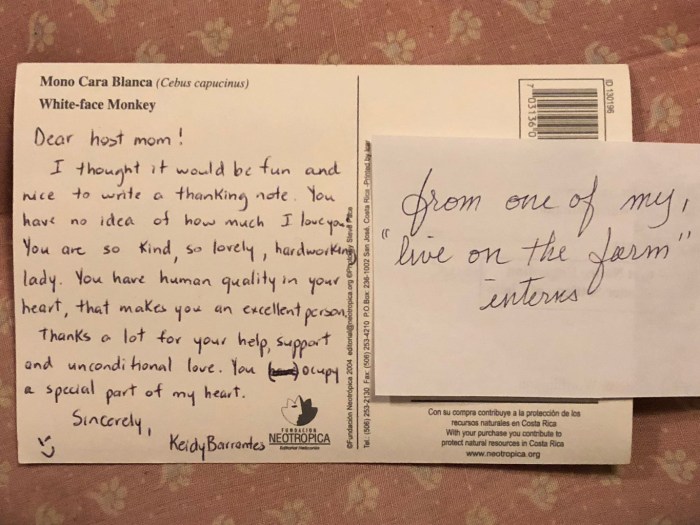 Mono Cara Blanca (Cebus capucinus)
White-face Monkey
Dear host mom!
I thought it would be fun and
nice to write a thanking note. You
have no idea of how much I love you.
You are so kind, so lovely, hardworking
lady. You have human quality in your
heart, that makes you an excellent person.
Thanks a lot for your help, support
and unconditional love. You ocupy
a special part of my heart.
Sincerely,
Keidy Barrantes
FUNDACIÓN
NEOTROPICA
Editorial Heliconia
©Fundación Neotrópica 2004 editorial@neotropica.org
Tel.: (506) 253-2130 Fax: (506) 253-4210 P.O.Box: 236-1002 San José, Costa Rica - Printed by
ID 130196
7 03136 0
from one of my,
"live on the farm"
interns
Con su compra contribuye a la protección de los
recursos naturales en Costa Rica
With your purchase you contribute to
protect natural resources in Costa Rica
www.neotropica.org